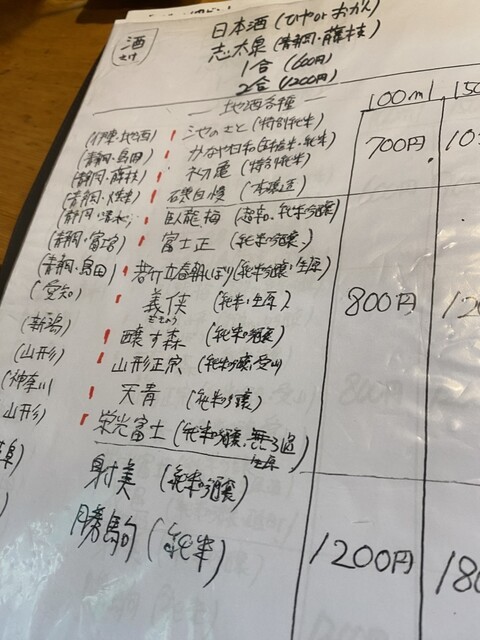 酒
さけ
日本酒 (ひや or おかん)
志太泉 (静岡・藤枝)
1合 (600円)
2合 (1200円)
地酒各種
100ml
(特別純米)
700円
(静岡・島田) かなや日和
(静岡・藤枝) 初亀 (特別純米)
(静岡・焼津) 磯自慢 (本醸造)
(静岡・清水) 臥龍梅 (純米吟醸)
(静岡・富士宮) 富士正 (純米吟醸)
(静岡・島田) 若竹立春朝しぼり (純米吟醸・生原)
(愛知) 義侠 (純米・生原)
ぎきょう
800円
(新潟) 醸す森 (純米吟醸)
(山形) 山形正宗
(神奈川) 天青 (純米吟醸)
山形) 栄光富士 (純米吟醸・無ろ過
生原)
射美 (純米吟醸)
勝駒 (純米)
1200円